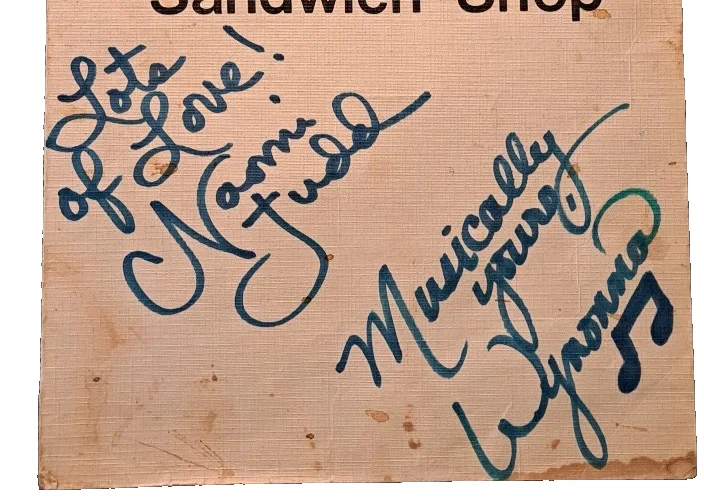 Sandwich Shop
Lots
of Love!
Naomi
Judd
Musically
yours,
Wynonna